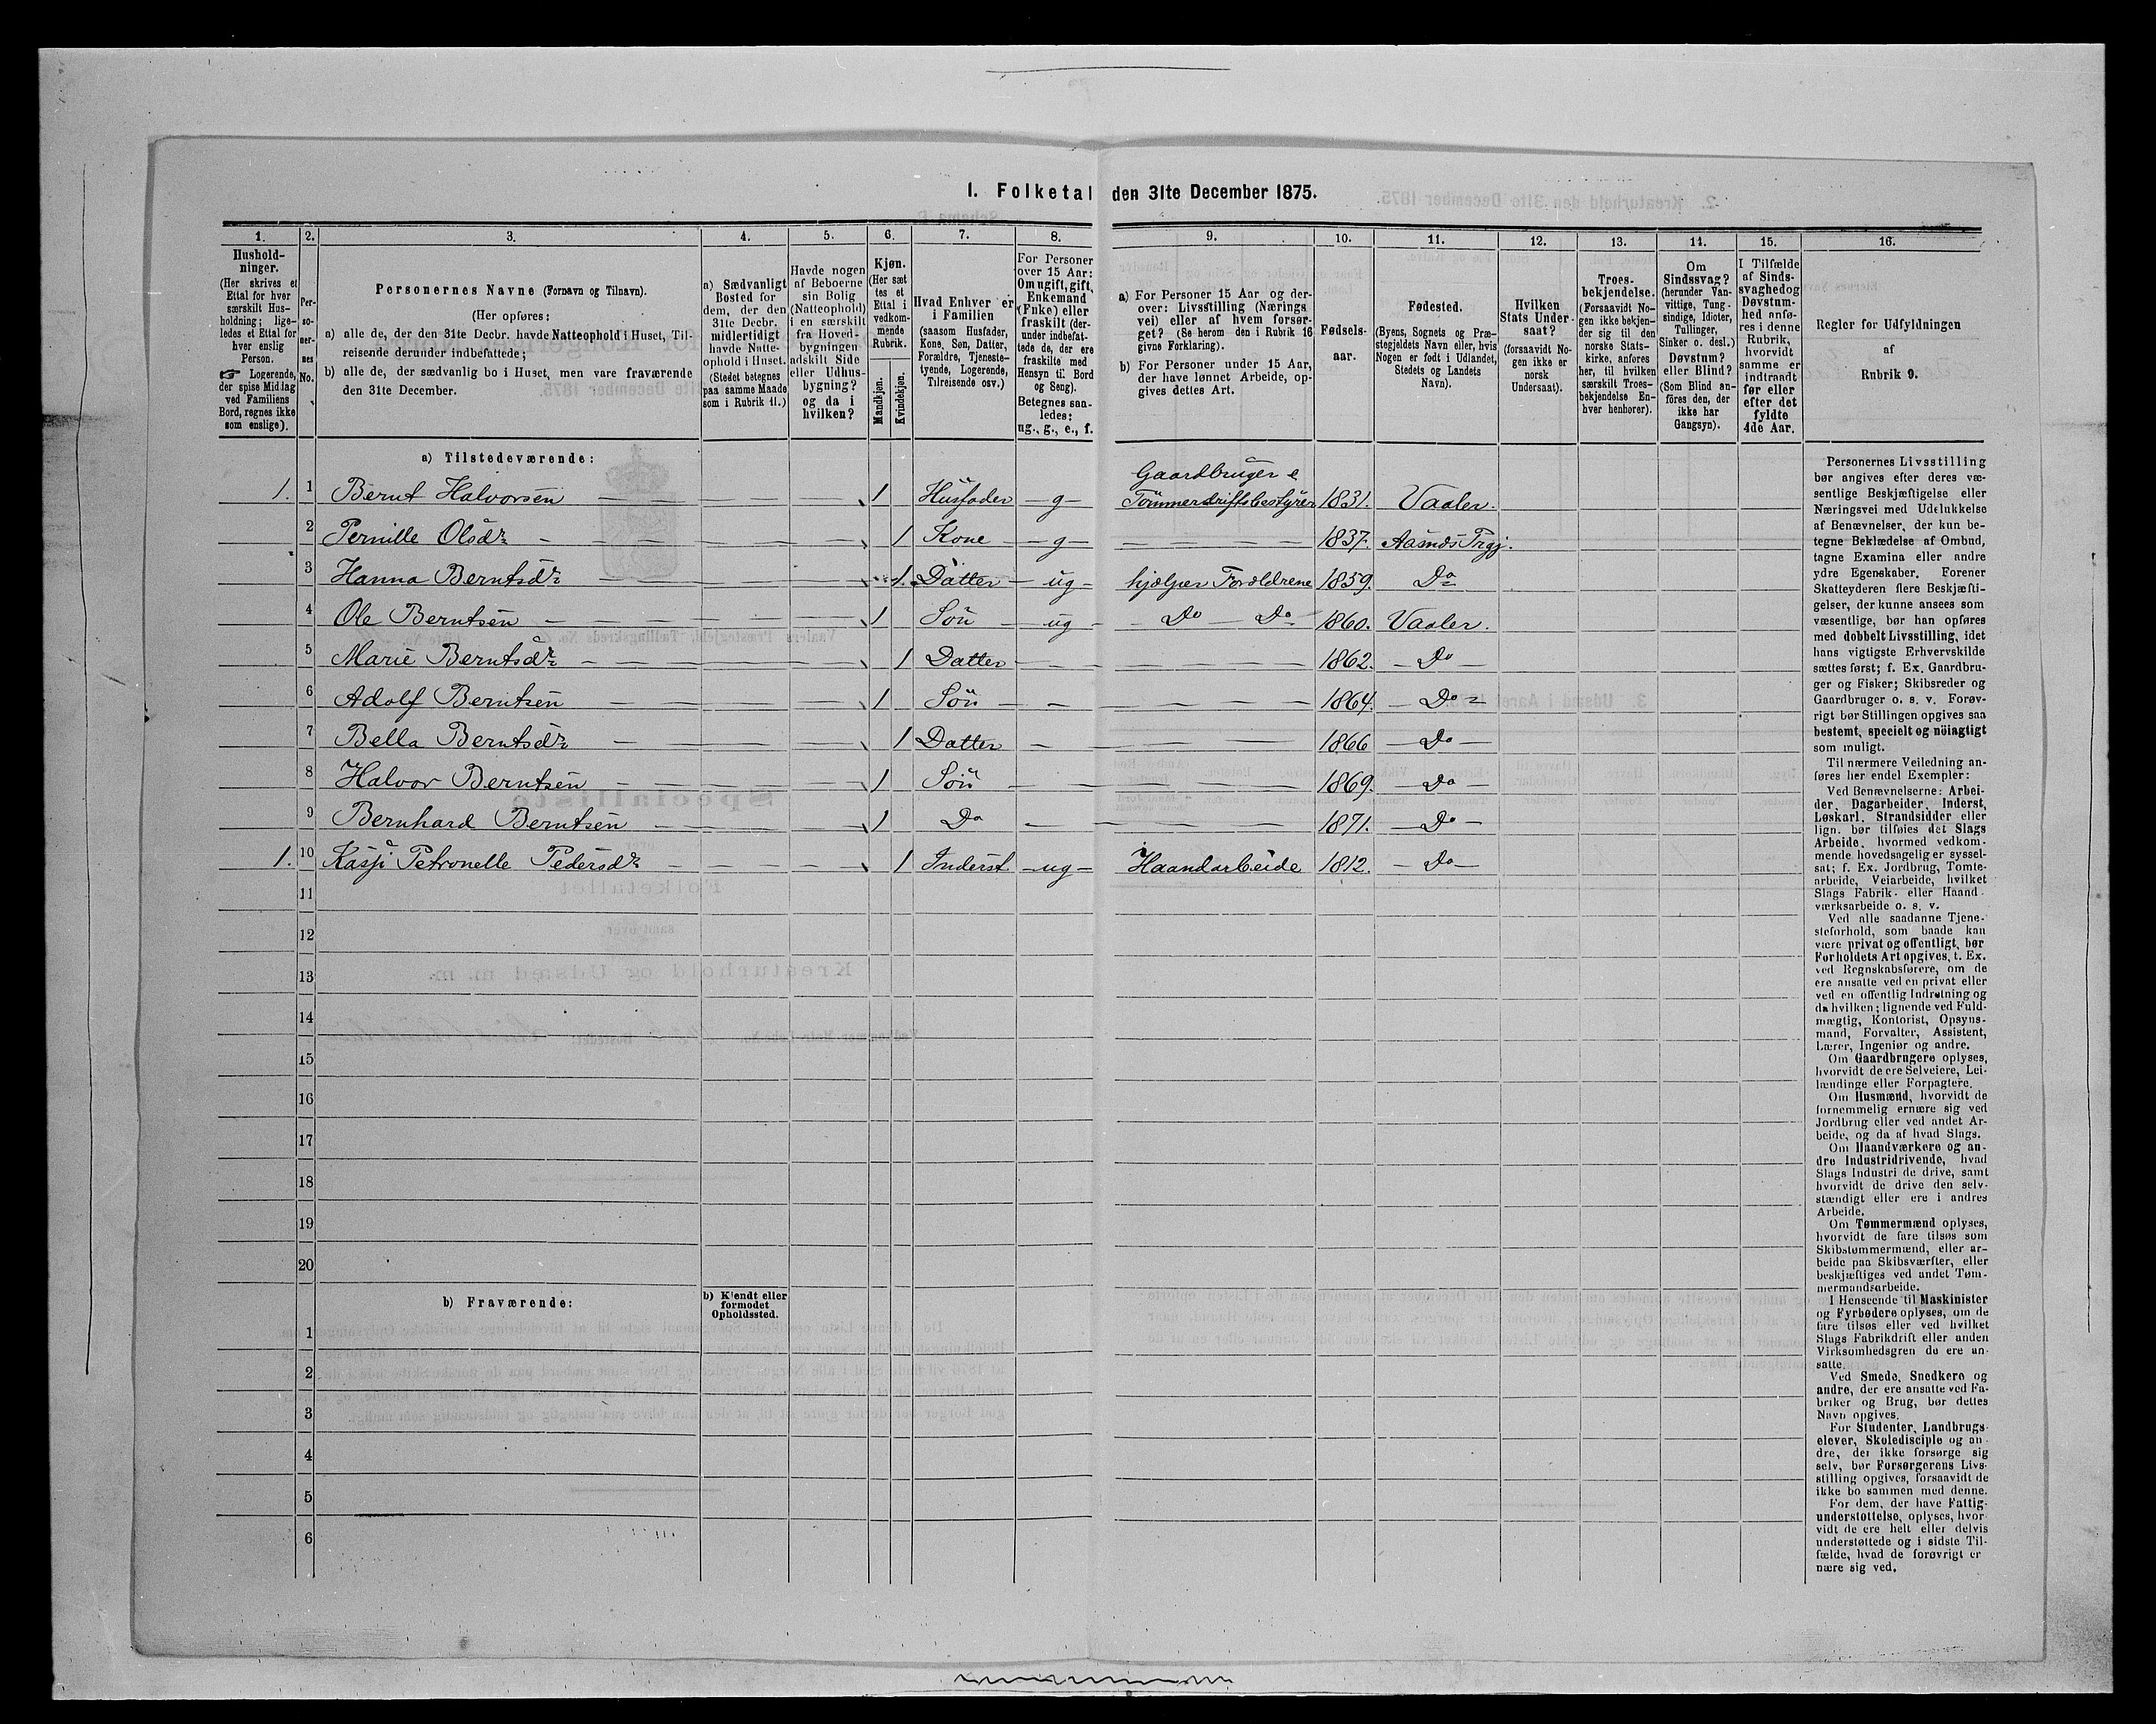 I. Folketal den 31te December 1875.
1. 2. 3. 4. 5. 6. 7. 8. 9. 10. 11. 12. 13. 14. 15. 16.
Hushold-
ninger.
(Her skrives et
Ettal for hver
særskilt Hus-
holdning; lige-
ledes et Ettal for
hver enslig
Person.
☞ Logerende,
der spise Middag
ved Familiens
Bord, regnes ikke
som enslige).
Per-
so-
ner-
nes
No.
Personernes Navne (Fornavn og Tilnavn).
(Her opføres:
a) alle de, der den 31te Decbr. havde Natteophold i Huset, Til-
reisende derunder indbefattede;
b) alle de, der sædvanlig bo i Huset, men vare fraværende
den 31te December.
a) Sædvanligt
Bosted for
dem, der den
31te Decbr.
midlertidigt
havde Natte-
ophold i Huset.
(Stedet betegnes
paa samme Maade
som i Rubrik 11.)
Havde nogen
af Beboerne
sin Bolig
(Natteophold)
i en særskilt
fra Hoved-
bygningen
adskilt Side
eller Udhus-
bygning?
og da i
hvilken?
Kjøn.
(Her sæt
tes et
Ettal i
vedkom-
mende
Rubrik.
Mandkjøn.
Kvindekjøn.
Hvad Enhver er
i Familien
(saasom Husfader,
Kone, Søn, Datter,
Forældre, Tjeneste-
tyende, Logerende,
Tilreisende osv.)
For Personer
over 15 Aar:
Om ugift, gift,
Enkemand
(Enke) eller
fraskilt (der-
under indbefat-
tede de, der ere
fraskilte med
Hensyn til Bord
og Seng).
Betegnes saa-
ledes:
ug., g., e., f.
a) For Personer 15 Aar og der-
over: Livsstilling (Nærings
vei) eller af hvem forsør-
get? (Se herom den i Rubrik 16
givne Forklaring).
b) For Personer under 15 Aar,
der have lønnet Arbeide, op-
gives dettes Art.
Fødsels-
aar.
Fødested.
(Byens, Sognets og Præ-
stegjeldets Navn eller, hvis
Nogen er født i Udlandet,
Stedets og Landets
Navn).
Hvilken
Stats Under-
saat?
(forsaavidt No-
gen ikke er
norsk
Undersaat).
Troes-
bekjendelse.
(Forsaavidt No-
gen ikke bekjen-
der sig til den
norske Stats-
kirke, anføres
her, til hvilken
særskilt Troes-
bekjendelse En-
hver henhører).
Om
Sindssvag?
(herunder Van-
vittige, Tung-
sindige, Idioter,
Tullinger,
Sinker o. desl.)
Døvstum?
eller Blind?
(Som Blind an-
føres den, der
ikke har
Gangsyn).
I Tilfælde
af Sinds-
svaghed og
Døvstum-
hed anfø-
res i denne
Rubrik,
hvorvidt
samme er
indtraadt
før eller
efter det
fyldte
4de Aar.
Regler for Udfyldningen
af
Rubrik 9.
a) Tilstedeværende:
1. 1 Bernt Halvorsen 1 Husfader g Gaardbruger e Tømmerdriftsbestyrer 1831. Vaaler.
2 Pernille Olsdr 1 Kone g 1837. Aasnes Prgj.
3 Hanna Berntsdr 1. Datter ug hjælper Forældrene 1859. Do
4 Ole Berntsen 1 Søn ug Do Do 1860. Vaaler.
5 Marie Berntsdr 1 Datter 1862. Do
6 Adolf Berntsen 1 Søn 1864. Do
7 Bella Berntsdr 1 Datter 1866 Do
8 Halvor Berntsen 1 Søn 1869. Do
9 Bernhard Berntsen 1 Do 1871. Do
1. 10 Kasji Petronelle Pedersdr 1 Inderst. ug Haandarbeide 1812. Do
11
12
13
14
15
16
17
18
19
20
b) Fraværende:
b) Kjendt eller
formodet
Opholdssted.
1
2
3
4
5
6
Personernes Livsstilling
bør angives efter deres væ-
sentlige Beskjæftigelse eller
Næringsvei med Udelukkelse
af Benævnelser, der kun be-
tegne Beklædelse af Ombud,
tagne Examina eller andre
ydre Egenskaber. Forener
Skatteyderen flere Beskjæfti-
gelser, der kunne ansees som
væsentlige, bør han opføres
med dobbelt Livsstilling, idet
hans vigtigste Erhvervskilde
sættes først; f. Ex. Gaardbru-
ger og Fisker; Skibsreder og
Gaardbruger o. s. v. Forøv-
rigt bør Stillingen opgives saa
bestemt, specielt og nöiagtigt
som muligt.
Til nærmere Veiledning an-
føres her endel Exempler:
Ved Benævnelserne: Arbei-
der, Dagarbeider, Inderst,
Løskarl, Strandsidder eller
lign. bør tilføies det Slags
Arbeide, hvormed vedkom-
mende hovedsagelig er syssel-
sat; f. Ex. Jordbrug, Tomte-
arbeide, Veiarbeide, hvilket
Slags Fabrik- eller Haand-
værksarbeide o. s. v.
Ved alle saadanne Tjene-
steforhold, som baade kan
være privat og offentligt, bør
Forholdets Art opgives, t. Ex.
ved Regnskabsførere, om de
ere ansatte ved en privat eller
ved en offentlig Indretning og
da hvilken; lignende ved Fuld-
mægtig, Kontorist, Opsyns-
mand, Forvalter, Assistent,
Lærer, Ingeniør og andre.
Om Gaardbrugere oplyses,
hvorvidt de ere Selveiere, Lei-
lændinge eller Forpagtere.
Om Husmænd, hvorvidt de
fornemmelig ernære sig ved
Jordbrug eller ved andet Ar-
beide, og da af hvad Slags.
Om Haandværkere og an-
dre Industridrivende, hvad
Slags Industri de drive, samt
hvorvidt de drive den selv-
stændigt eller ere i andres
Arbeide.
Om Tømmermænd oplyses,
hvorvidt de fare tilsøs som
Skibstømmermænd, eller ar-
beide paa Skibsværfter, eller
beskjæftiges ved andet Tøm-
mermandsarbeide.
I Henseende til Maskinister
og Fyrbødere oplyses, om de
fare tilsøs eller ved hvilket
Slags Fabrikdrift eller anden
Virksomhedsgren de ere an-
satte.
Ved Smede, Snedkere og
andre, der ere ansatte ved Fa-
briker og Brug, bør dettes
Navn opgives.
For Studenter, Landbrugs-
elever, Skoledisciple og an-
dre, der ikke forsørge sig
selv, bør Forsørgerens Livs-
stilling opgives, forsaavidt de
ikke bo sammen med denne.
For dem, der have Fattig-
understøttelse, oplyses, hvor-
vidt de ere helt eller delvis
understøttede og i sidste Til-
fælde, hvad de forøvrigt er
nære sig ved.